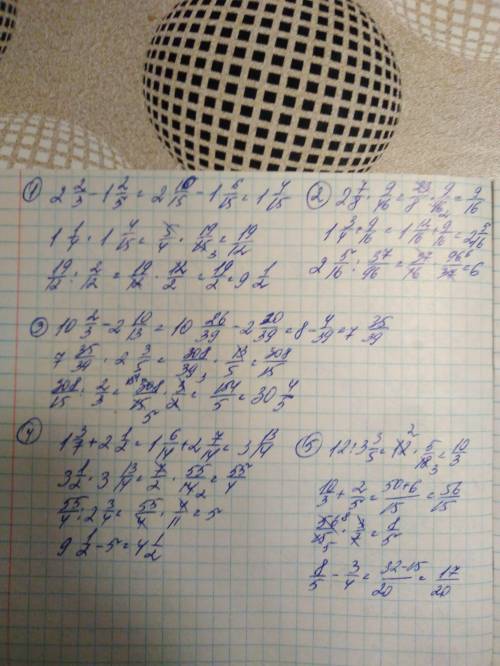 1) 2 2/3 - 1 2/5 = 2 10/15 - 1 6/15 = 1 4/15
1 1/4 · 1 4/15 = 5/4 · 19/15 3 = 19/12
19/12 : 2/12 = 19/12 · 12/2 = 19/2 = 9 1/2
2) 2 7/8 · 9/16 = 23/8 · 9/16 2 = 9/16
1 3/4 + 9/16 = 1 12/16 + 9/16 = 2 5/16
2 5/16 : 37/96 = 37/16 · 96 6/37 = 6
3) 10 2/3 - 2 10/13 = 10 26/39 - 2 30/39 = 8 - 4/39 = 7 35/39
7 35/39 · 2 3/5 = 308/39 3 · 13/5 = 308/15
308/15 · 2/3 = 154 308/15 5 · 3/2 = 154/5 = 30 4/5
4) 1 3/7 + 2 1/2 = 1 6/14 + 2 7/14 = 3 13/14
3 1/2 · 3 13/14 = 7/2 · 55/14 2 = 55/4
55/4 : 2 3/4 = 55/4 · 4/11 = 5
9 1/2 - 5 = 4 1/2
5) 12 : 3 3/5 = 12 2 · 5/18 3 = 10/3
10/3 + 2/5 = 50+6/15 = 56/15
56 8/15 5 · 3/7 = 8/5
8/5 - 3/4 = 32-15/20 = 17/20